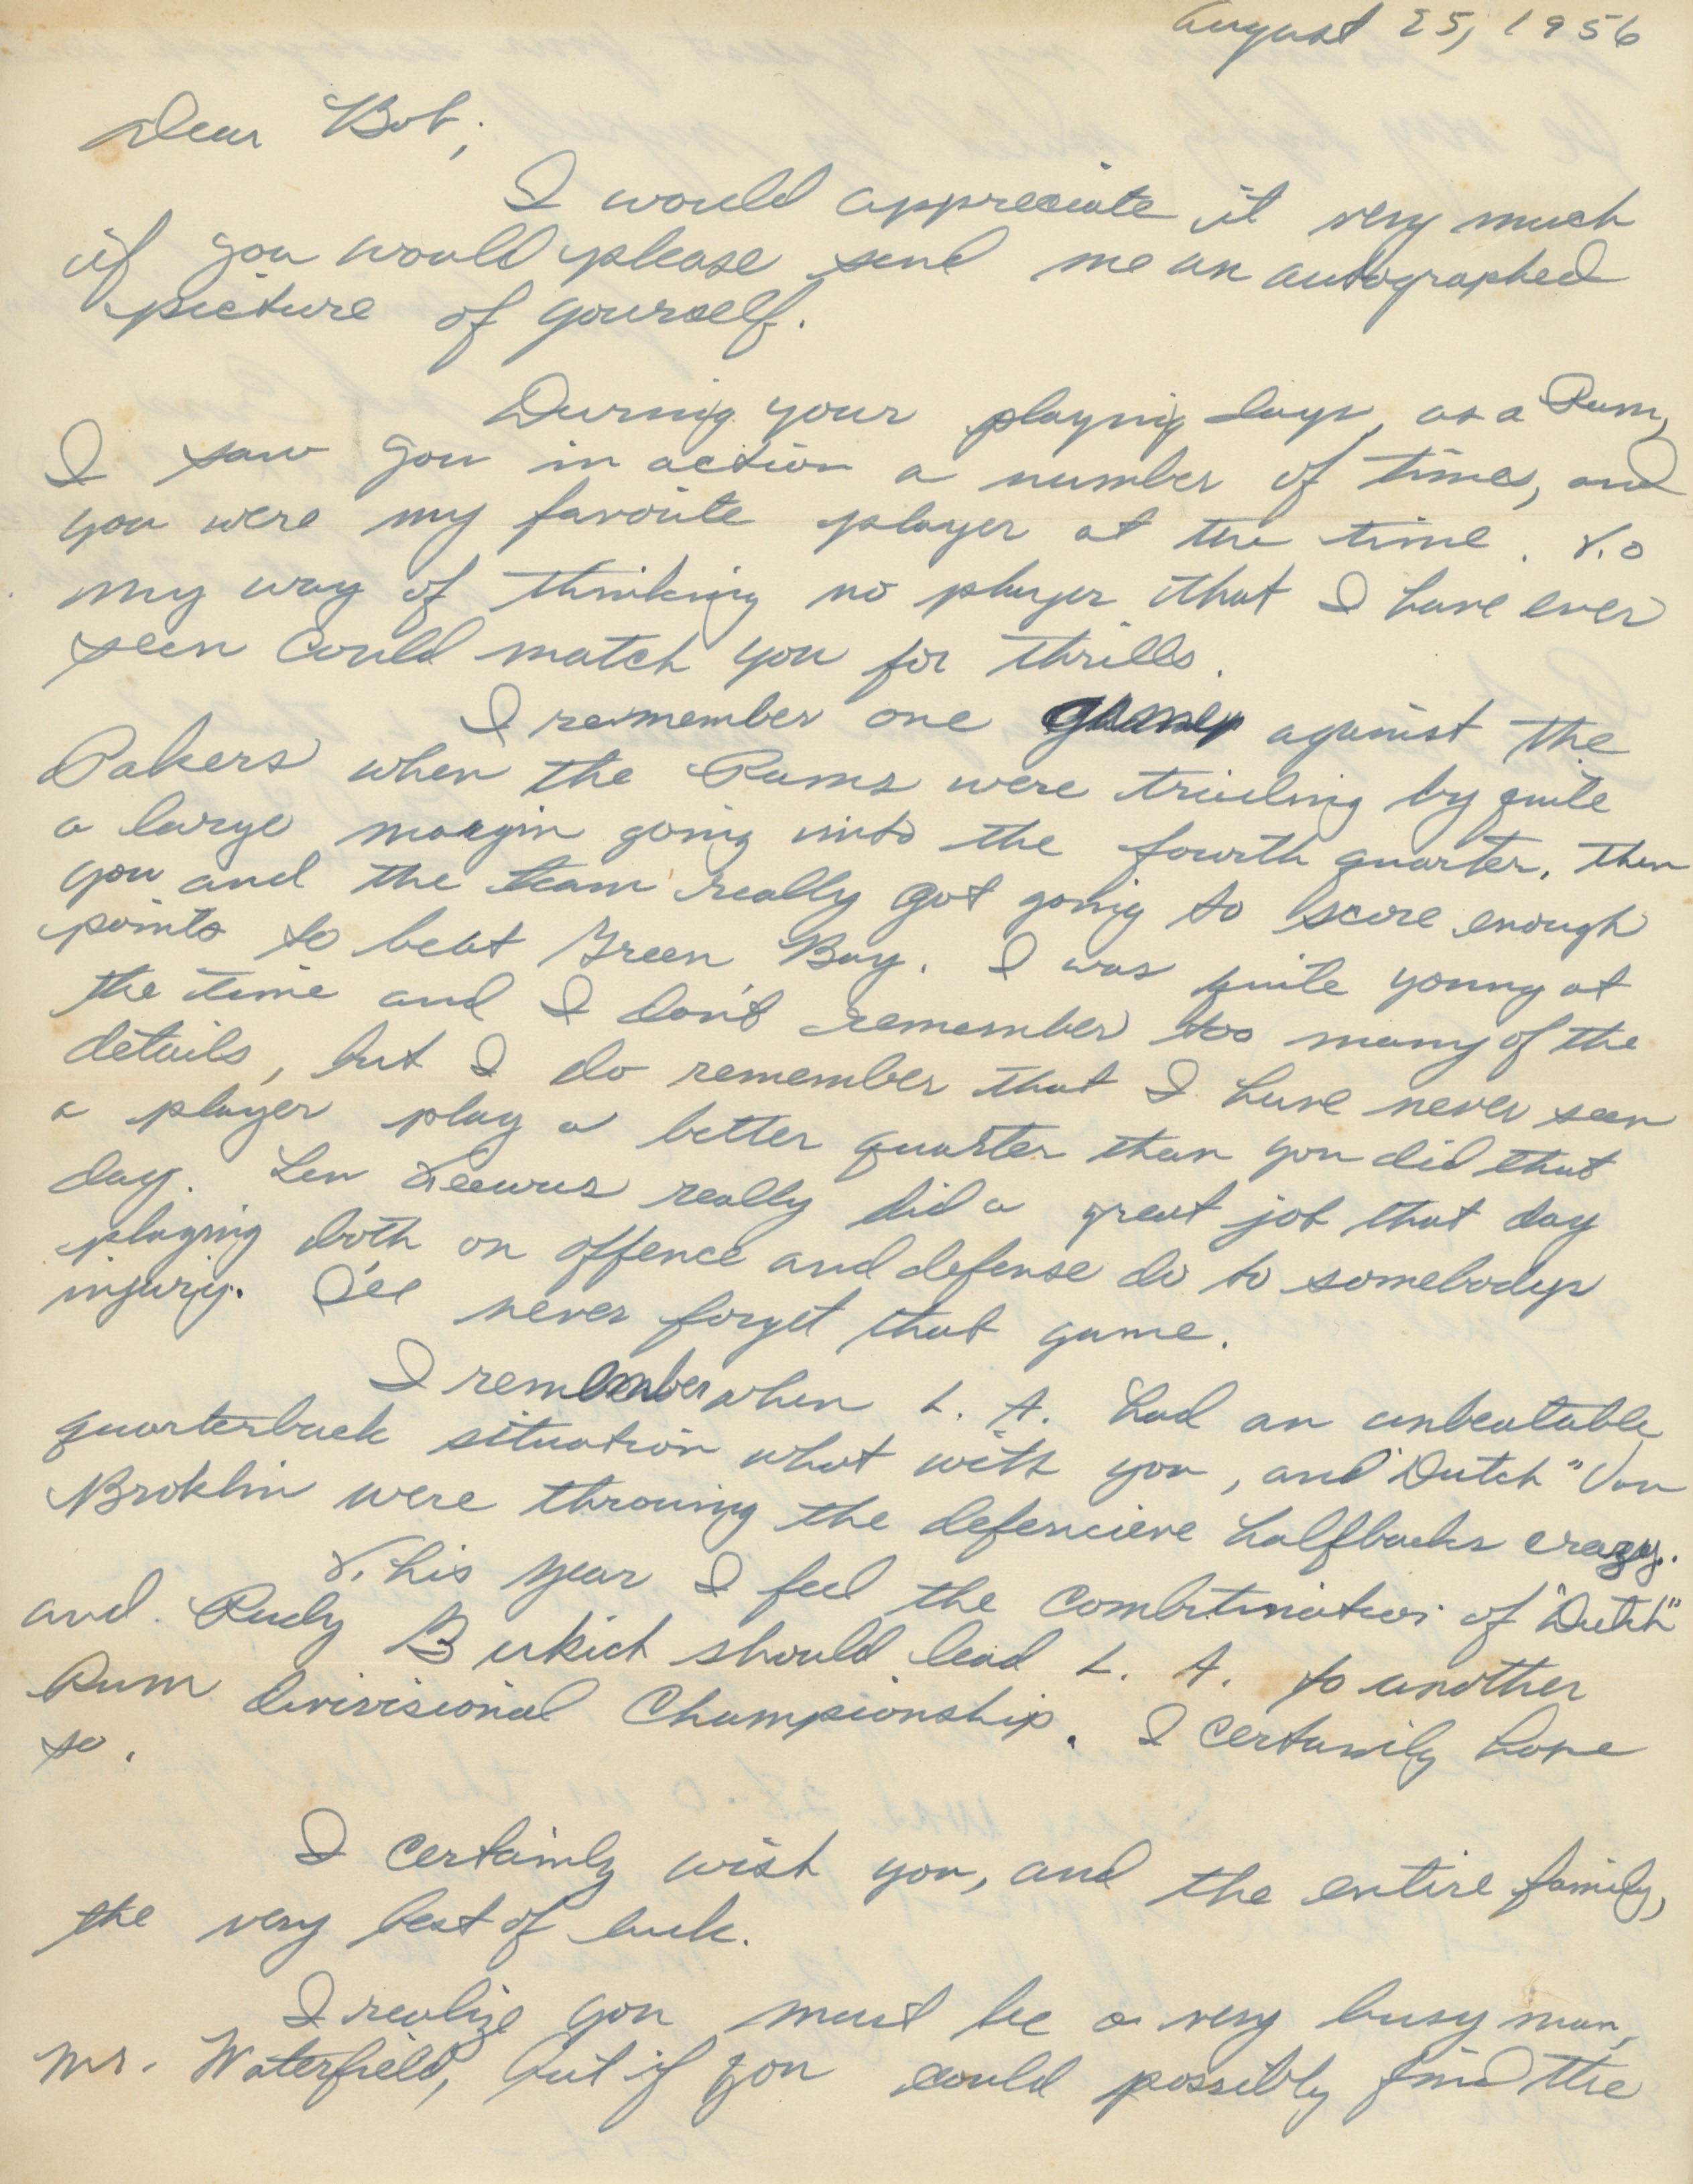 August 25, 1956
Dear Bob;
I would appreciate it very much
if you would please send me an autographed
picture of yourself.
During your playing days, as a Ram,
I saw you in action a number of times, and
you were my favorite player at the time. To
my way of thinking no player that I have ever
seen could match you for thrills.
I remember one game against the
Pakers when the Rams were trailing by quite
a large margin going into the fourth quarter. Then
you and the team really got going to score enough
points to beat Green Bay. I was quite young at
the time and I don't remember too many of the
details, but I do remember that I have never seen
a player play a better quarter than you did that
day. Len really did a great job that day
playing both on offence and defense do to somebodys
injury. I'll never forget that game.
I remember when L. A. had an unbeatable
quarterback situation what with you, and "Dutch" Van
Broklin were throwing the defencieve halfbacks crazy.
This year I feel the combitination of "Dutch"
and Rudy Bukich should lead L. A. to another
Ram divisional Championship. I certainly hope
so.
I certainly wish you, and the entire family,
the very best of luck.
I realize you must be a very busy man,
Mr. Waterfield, but if you could possibly find the